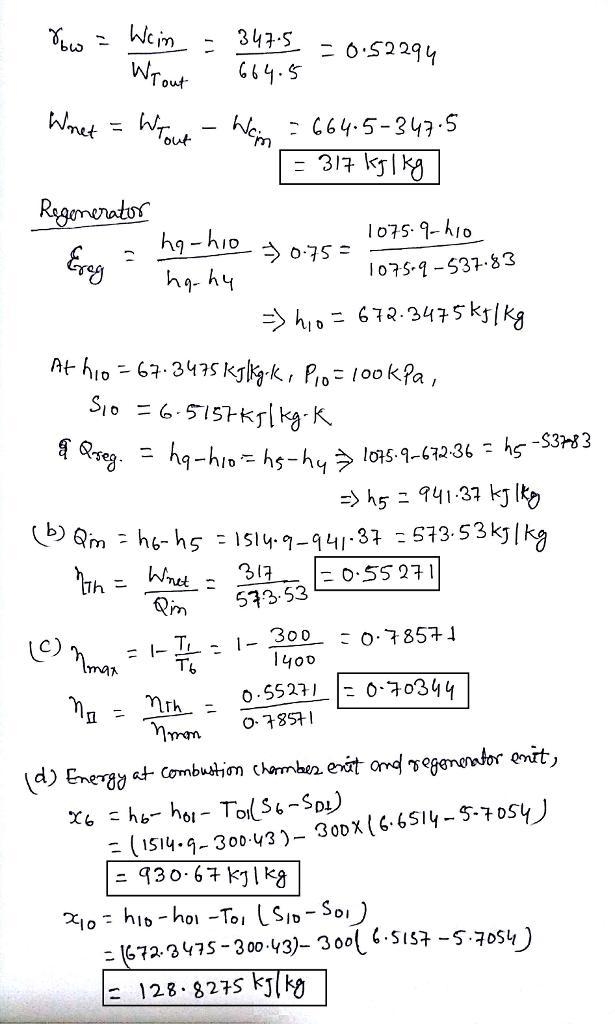 r_bw = W_Cin / W_Tout = 347.5 / 664.5 = 0.52294
W_net = W_Tout - W_Cin = 664.5-347.5
= 317 kJ/kg
Regenerator
ε_reg = (h9-h10) / (h9-h4) ⇒ 0.75 = (1075.9-h10) / (1075.9-537.83)
⇒ h10 = 672.3475 kJ/kg
At h10 = 67.3475 kJ/kg.K, P10 = 100 kPa,
S10 = 6.5157 kJ/kg-K
q Qreg. = h9-h10 = h5-h4 ⇒ 1075.9-672.36 = h5-537.83
⇒ h5 = 941.37 kJ/kg
(b) Qin = h6-h5 = 1514.9-941.37 = 573.53 kJ/kg
ηTh = Wnet / Qin = 317 / 573.53 = 0.55271
(c) ηmax = 1- T1 / T6 = 1- 300 / 1400 = 0.78571
ηII = ηTh / ηmax = 0.55271 / 0.78571 = 0.70344
(d) Energy at combustion chamber exit and regenerator exit,
x6 = h6-h01-T01(S6-S01)
= (1514.9-300.43)-300x(6.6514-5.7054)
= 930.67 kJ/kg
x10 = h10-h01-T01(S10-S01)
= (672.3475-300.43)-300(6.5157-5.7054)
= 128.8275 kJ/kg